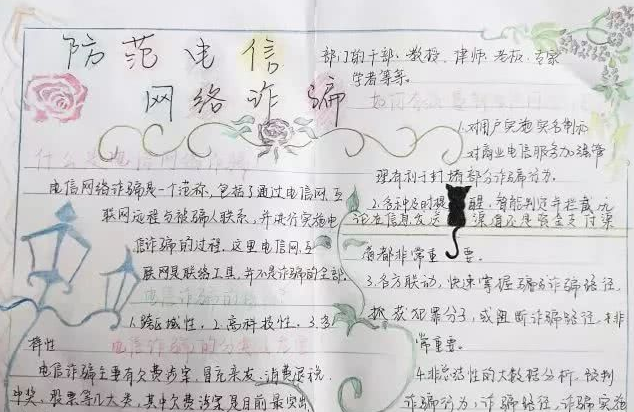 防范电信
网络诈骗
什么是电信网络诈骗
电信网络诈骗是一个范称，包括了通过电信网、互
联网远程与被骗人联系，并进行实施电
信诈骗的过程。这里电信网、互
联网是联络工具，并不是诈骗的全部。
电信诈骗的
1.跨区域性，2.高科技性，3.多
样性
电信诈骗的
电信诈骗主要有欠费涉案、冒充亲友、消费退税、
中奖、股票等几大类，其中欠费涉案是目前最突出
部门的干部、教授、律师、老板、专家
学者等等。
如何
1.对用户实施实名制和
对商业电信服务加强管
理有利于打 部分诈骗行为。
2.多种及时提醒，智能判定并拦截无
论在信息发 渠道还是资金支付渠
道都非常重要。
3.各方联动，快速掌握骗的诈骗路径，
抓获犯罪分子，或阻断诈骗路径，非
常重要。
4.非总结性的大数据分析。预判
诈骗行为，诈骗路径，诈骗实施